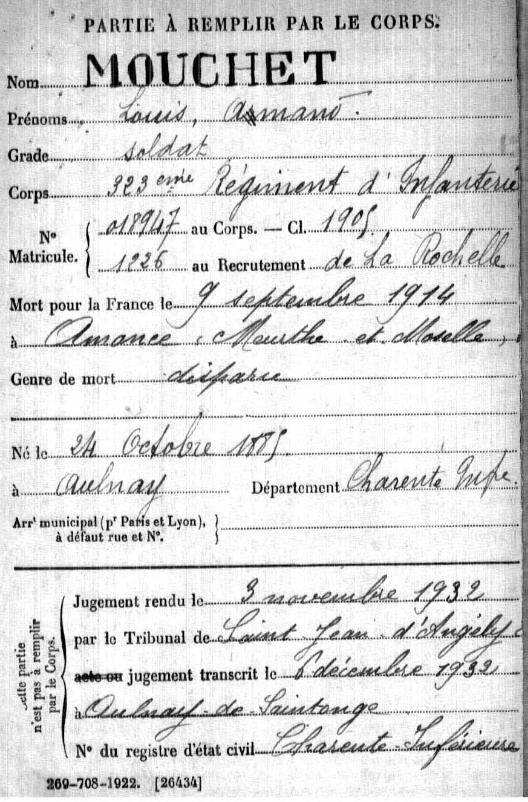 PARTIE À REMPLIR PAR LE CORPS.
Nom MOUCHET
Prénoms Louis, Armand.
Grade soldat
Corps 323 eme Régiment d'Infanterie
N° Matricule. { 018947 au Corps. — Cl. 1905
1226 au Recrutement de La Rochelle
Mort pour la France le 9 septembre 1914
à Amance, Meurthe et Moselle,
Genre de mort disparu
Né le 24 Octobre 1885
à Aulnay Département Charente Infre.
Arrt municipal (pr Paris et Lyon), }
à défaut rue et N°.
cette partie n'est pas à remplir par le Corps.
Jugement rendu le 3 novembre 1932
par le Tribunal de Saint Jean d'Angély
acte ou jugement transcrit le 6 décembre 1932
à Aulnay de Saintonge
N° du registre d'état civil Charente-Inférieure
269-708-1922. [26434]